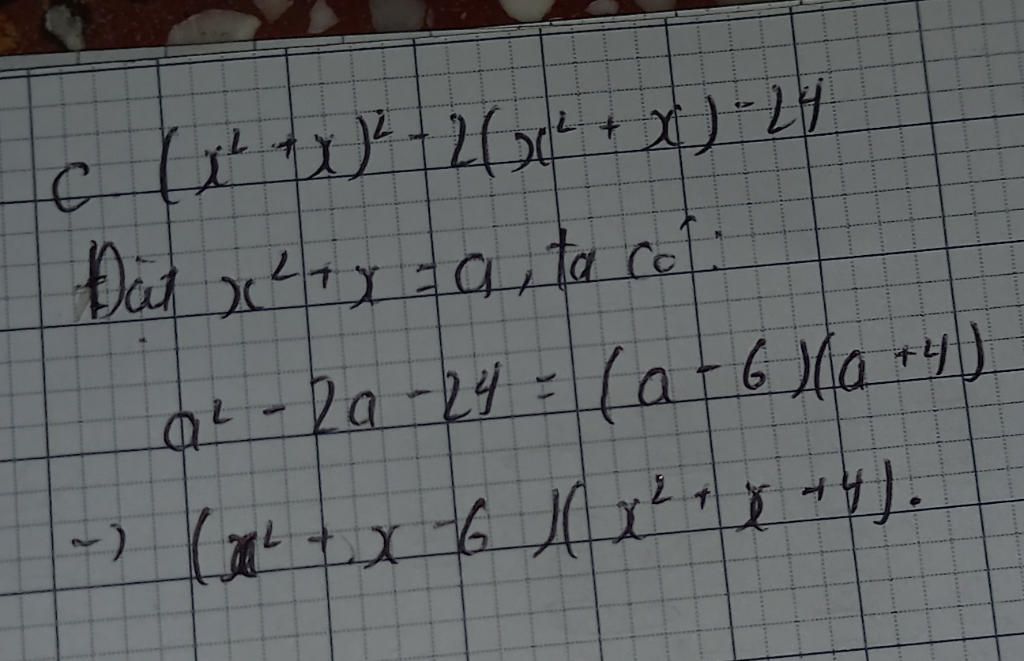 c (x² + x)² - 2(x² + x) - 24
Đặt x² + x = a, ta có:
a² - 2a - 24 = (a - 6)(a + 4)
-> (x² + x - 6)(x² + x + 4).